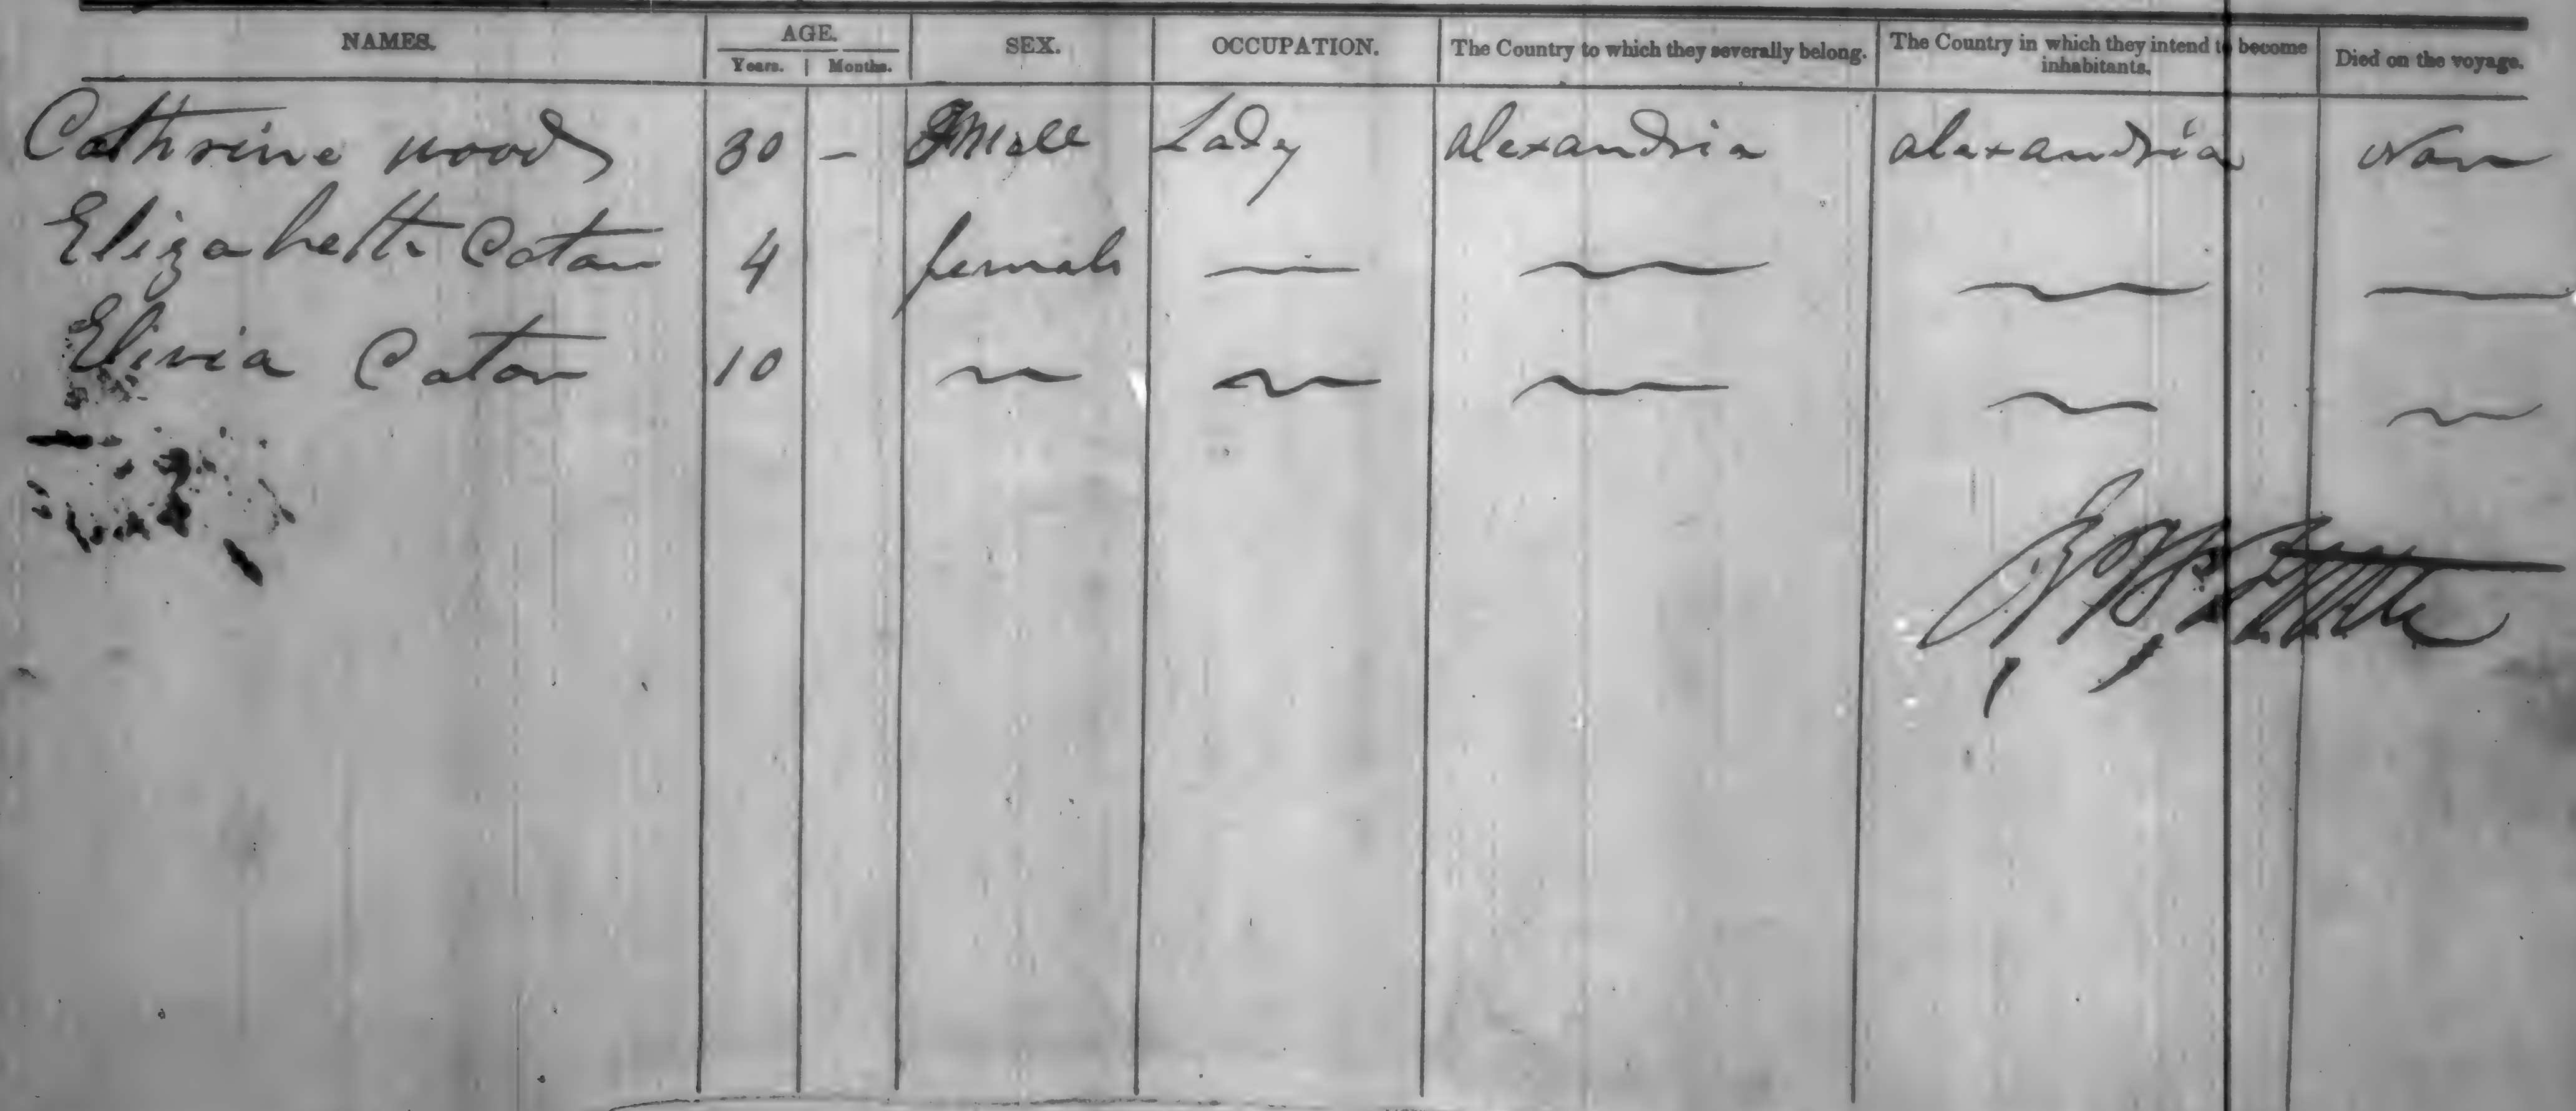 NAMES. AGE. SEX. OCCUPATION. The Country to which they severally belong. The Country in which they intend to become inhabitants. Died on the voyage.
Years. Months.
Cathrine Wood 30 – Female Lady alexandria alexandria Non
Elizabeth Caton 4 female — ~ ~ —
Elivia Caton 10 ~ ~ ~ ~ ~